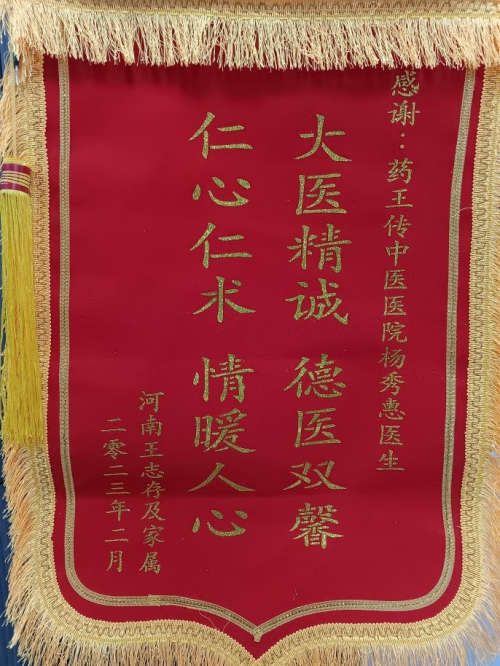 感谢：药王传中医医院杨秀惠医生
大医精诚 德医双馨
仁心仁术 情暖人心
河南王志存及家属
二零二三年二月